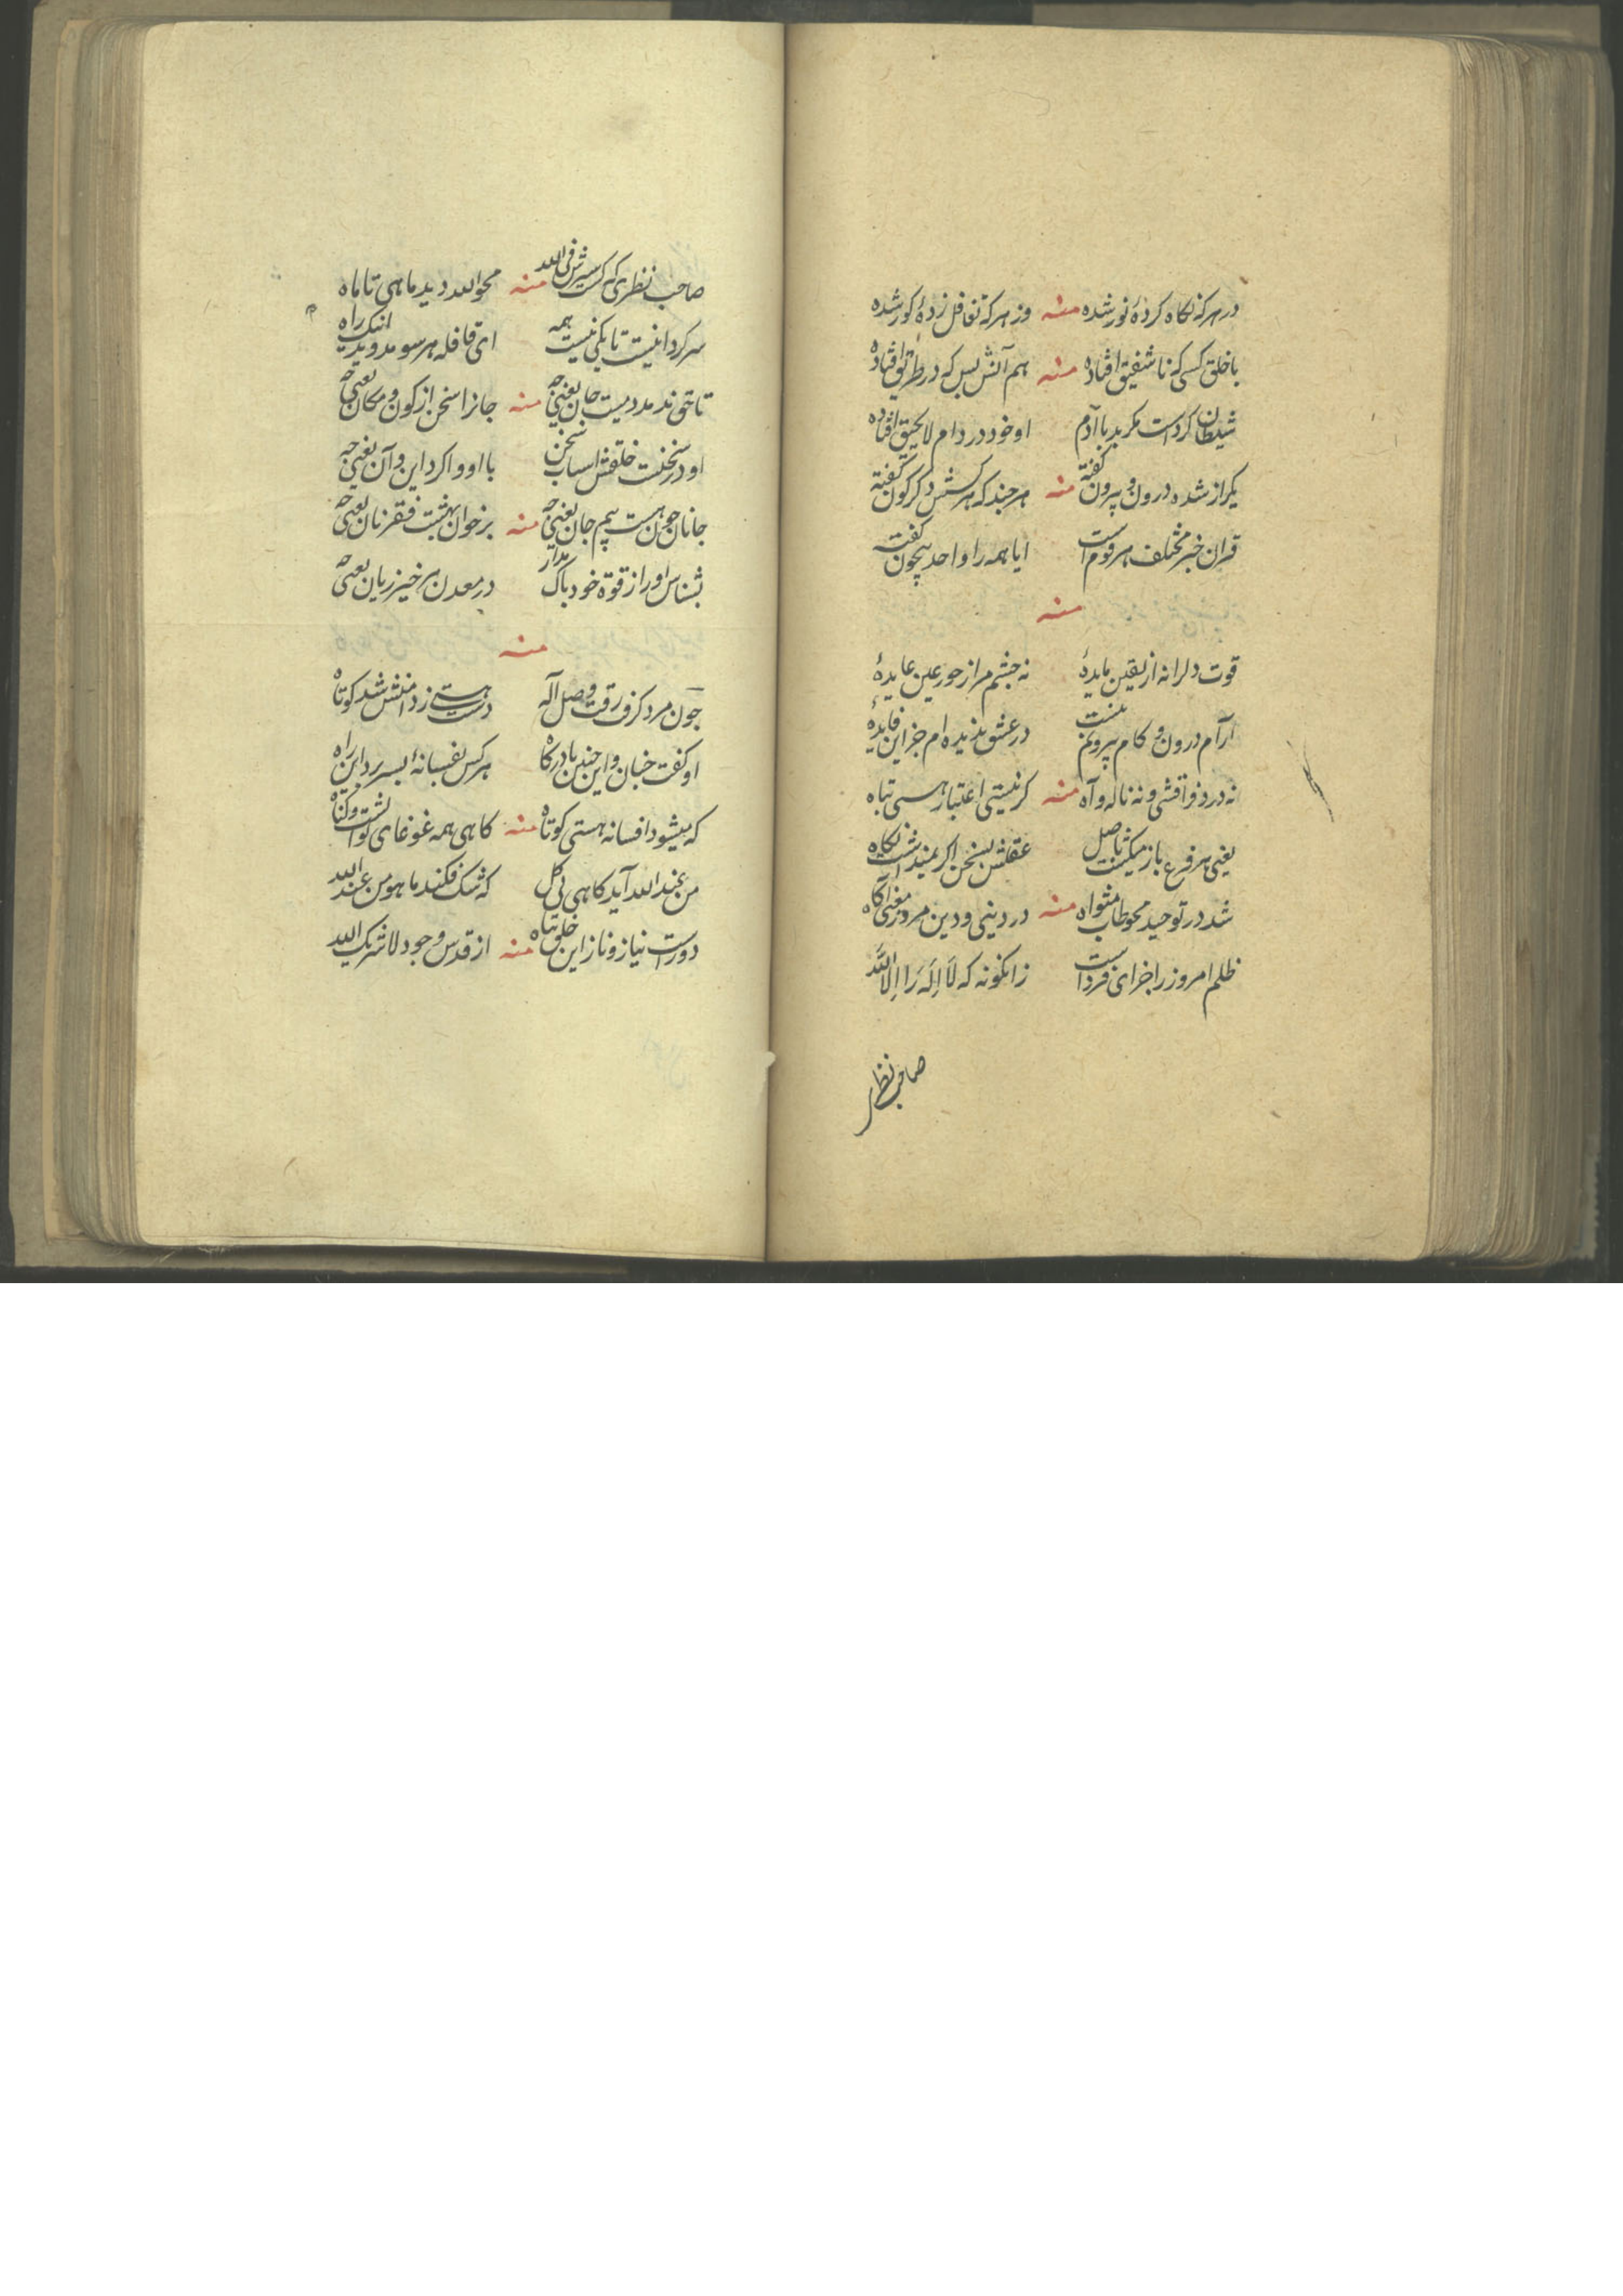 در هر که نکاه کردهٔ نور شده منه وز هر که تغافل زدهٔ کور شده
با خلق کسی که ناشفیق افتاده منه هم آتش بس که در طریق افتاده
شیطان کردست مکر بد با آدم او خود در دام لایحیق افتاده
یکراز شده درون و بیرون گفته منه هر چند که هر کسش دکرکون گفته
قران خبر مختلف هر قوم است ایا همه را واحد بیچون گفت
منه
قوت دلرا نه از یقین مایدهٔ نه چشم مرا ز حور عین عایدهٔ
آرام درون و کام بیرونم نیست در عشق ندیده ام جز این فایدهٔ
نه درد فواقشی و نه ناله و آه منه کر نیستی اعتبار هستی تباه
یعنی هر فرع باز میکشت باصل عقلش بسخن اکر نمیداشت نکاه
شد در توحید محو طاب مثواه منه در دینی و دین مرد ز معنی آکاه
ظلم امروز را جزای فرداست زانکونه که لَا اِلَهَ رَا اِلَّا اللَّه
صاحب نظر
صاحب نظری که کشت سیرش فی الله منه محو الله دید ماهی تا ماه
سرکردانیست تا یکی نیست همه ای قافله هر سو مدوید اینک راه
تا حق ندمد دمیست جان یعنی چه منه جانرا سخن از کون و مکان یعنی چه
او در سخنست خلقش اسباب سخن با او و اکر این و آن یعنی چه
جانان چون هست بیم جان یعنی چه منه بر خوان بهشت فقر نان یعنی چه
بشناس او را ز قوة خود باک مدار در معدن هر خیز زیان یعنی چه
منه
چون مرد کزف رفت وصل آله دست هستی ز دامنش شد کوتاه
او کفت چنان و این چنین تا درکاه هر کس نفسبانهٔ بسر برد این راه
که میشود افسانه هستی کوتاه منه کاهی همه غوغای ثوابست و کناه
من عند الله آید کاهی بی کل که شک فکند ما هو من عند الله
دورست نیاز و ناز این خلق تباه منه از قدس وجود لا شریک الله